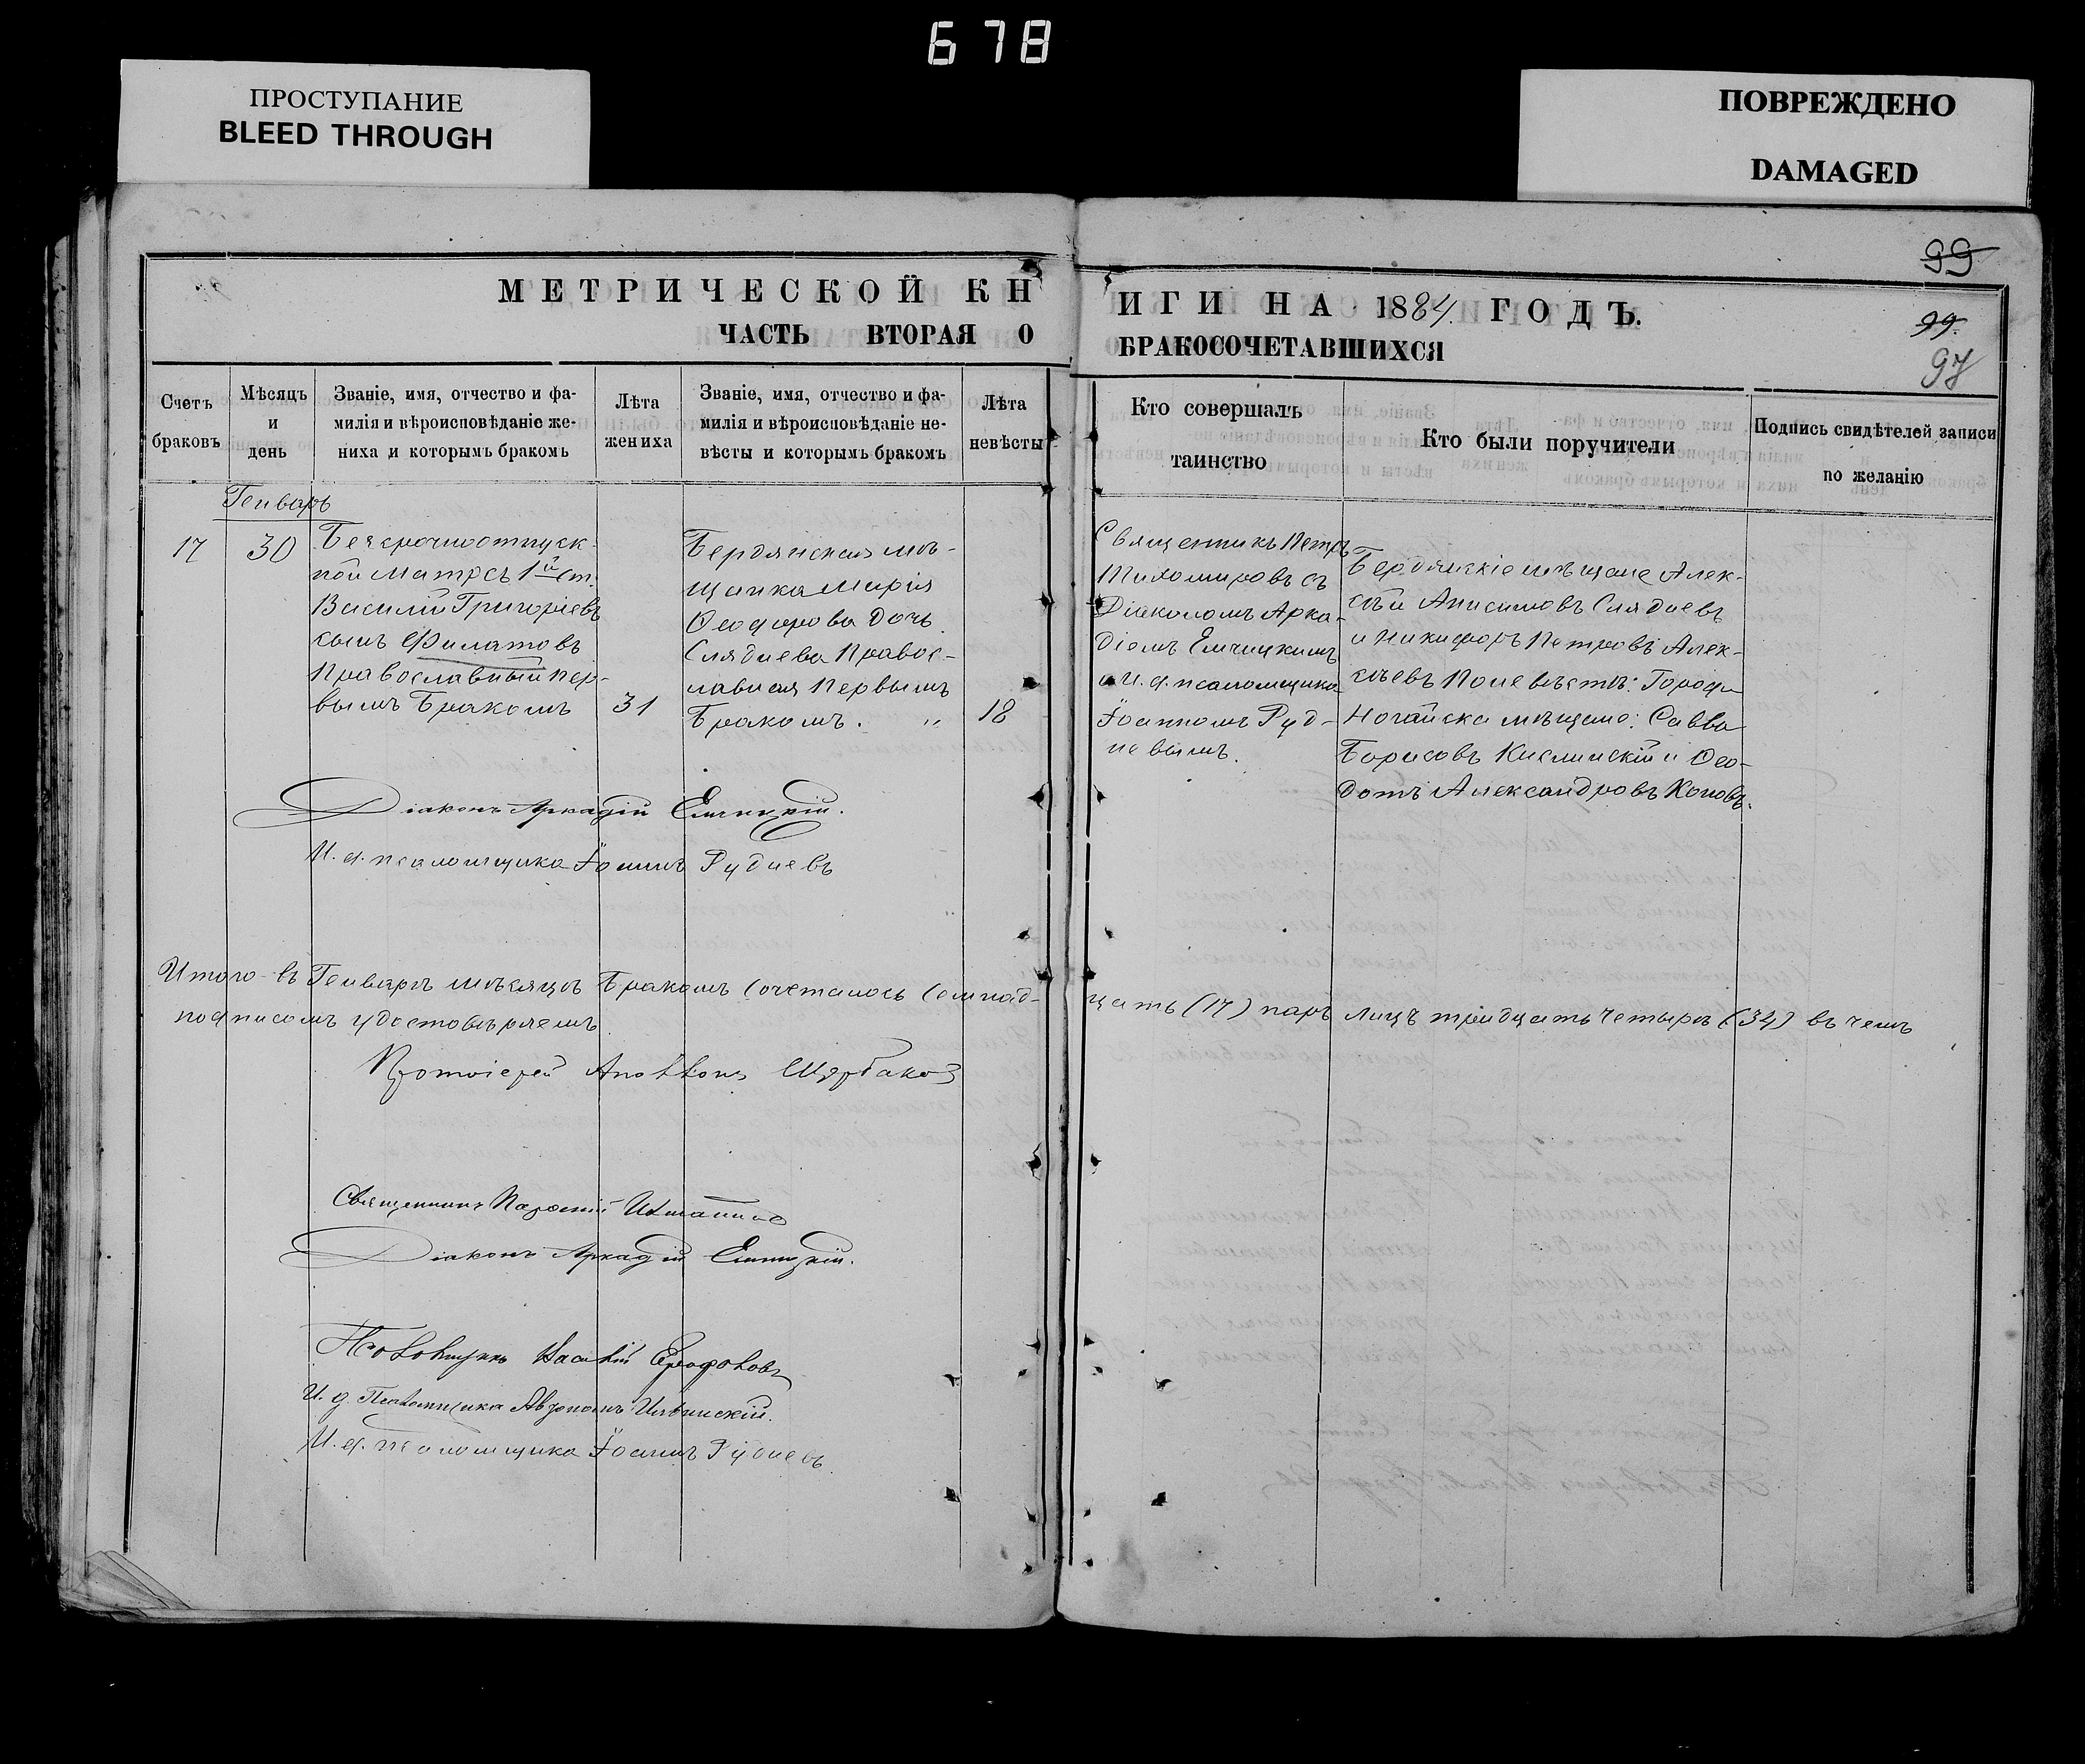 678
ПРОСТУПАНИЕ
BLEED THROUGH
ПОВРЕЖДЕНО
DAMAGED
99
99.
97
МЕТРИЧЕСКОЙ КНИГИ НА 1884. ГОДЪ.
ЧАСТЬ ВТОРАЯ О БРАКОСОЧЕТАВШИХСЯ
Счетъ браковъ
Мѣсяцъ и день
Званіе, имя, отчество и фа-
милія и вѣроисповѣданіе же-
ниха и которымъ бракомъ
Лѣта жениха
Званіе, имя, отчество и фа-
милія и вѣроисповѣданіе не-
вѣсты и которымъ бракомъ
Лѣта невѣсты
Кто совершалъ
таинство
Кто были поручители
Подпись свидѣтелей записи
по желанію
Генварь
17
30
Безсрочноотпуск-
ной матросъ 1й ст.
Василій Григоріевъ
сынъ Филатовъ
Православный пер-
вымъ Бракомъ
31
Бердянская мѣ-
щанка Марія
Ѳеодорова дочь
Сляднева Правос-
лавная Первымъ
Бракомъ. "
18
Священникъ Петръ
Тихомировъ съ
Діакономъ Арка-
діемъ
и И. д. псаломщика
Іоанномъ Руд-
невымъ.
Бердянскіе мѣщане Алек-
сѣй Анисимовъ Слядневъ
и Никифоръ Петровъ Алек-
сѣевъ По невѣстѣ: Города
Ногайска мѣщане: Савва
Борисовъ Кислинскій и Ѳео-
дотъ Александровъ Коновъ.
Діаконъ Аркадій
И. д. псаломщика Іоаннъ Рудневъ
Итого въ Генварѣ мѣсяцѣ Бракомъ сочеталось семнад-
цать (17) паръ лицъ тридцать четыре (34) въ чемъ
подписомъ удостовѣряемъ
Протоіерей Аполлонъ Щербаковъ
Священникъ
Діаконъ Аркадій
Василій
И. д. Псаломщика
И. д. псаломщика Іоаннъ Рудневъ